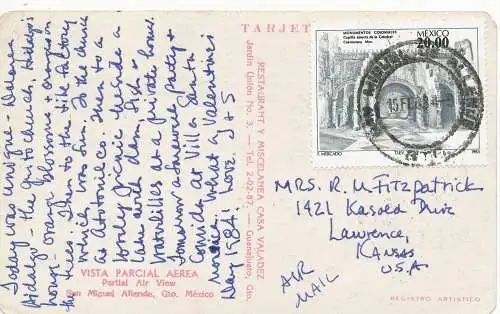 TARJET
RESTAURANT Y MISCELANEA CASA VALADEZ
Jardín Unión No. 3. — Tel. 2-02-87. — Guanajuato, Gto.
Today was unique - Dolores
Hidalgo - the grito church, Hidalgo's
home - orange blossoms & oranges on
the trees. Then to the tile factory
which was fun. So to the church
at Atotonilco. Then to a
lovely picnic beside a
lake with dam, fish &
waterlilies at a private home.
Tomorrow a farewell party &
Comida at Villa Santa
Monica. What a Valentine's
Day 1984. Love J & S
VISTA PARCIAL AEREA
Partial Air View
San Miguel Allende, Gto. México
MONUMENTOS COLONIALES
Capilla abierta de la Catedral
Cuernavaca Mor.
MEXICO
20.00
15 FEB
ALLENDE
MRS. R. U. Fitzpatrick
1921 Kasold Driv
Lawrence,
Kansas
U.S.A
AIR
MAIL
REGISTRO ARTISTICO